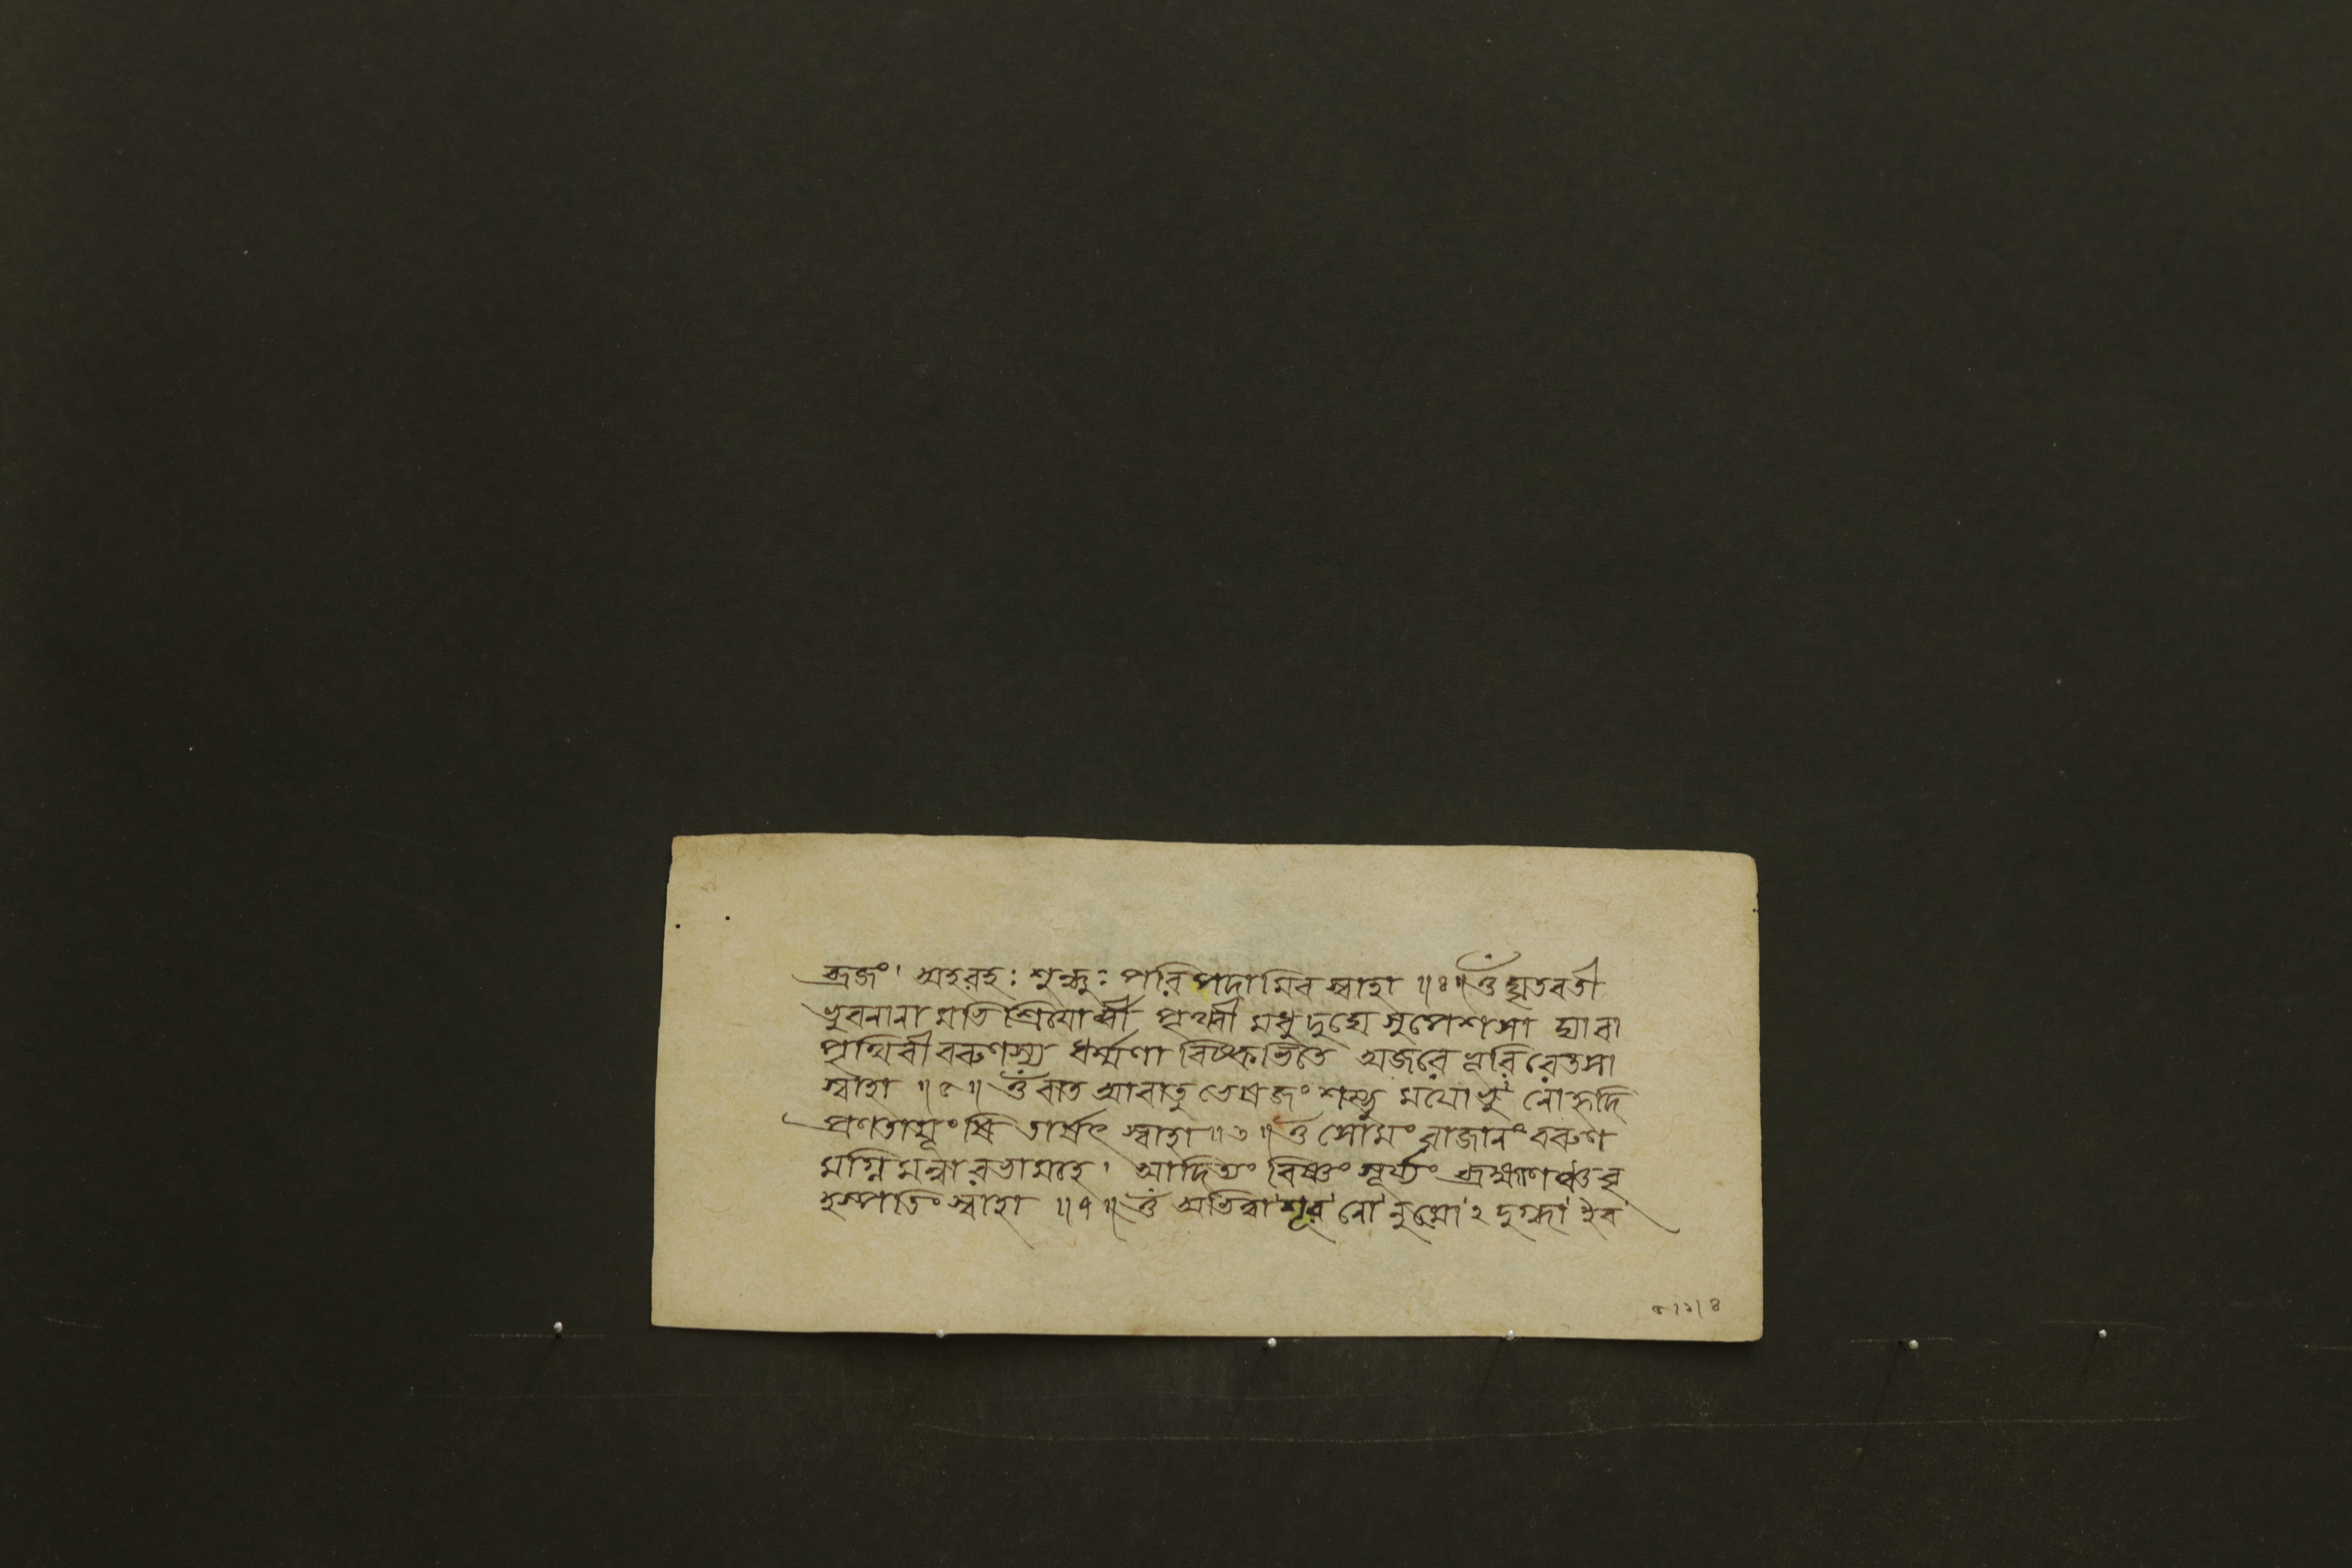 ব্রজং। অহরহঃ শুন্ধ্যুঃ পরিপদামিব স্বাহা ॥৪॥ ওঁ ঘৃতবতী
ভুবনানা মভি শ্রিয়োর্ব্বী পৃথ্বী মধুদুঘে সুপেশসা দ্যাবা
পৃথিবী বরুণস্য ধর্ম্মণা বিষ্কভিতে অজরে ভূরিরেতসা
স্বাহা ॥৫॥ ওঁ বাত আবাতু ভেষজং শম্ভু ময়োভু নোহৃদি
প্রণতায়ূংষি তার্ষৎ স্বাহা ॥৬॥ ওঁ সোমং রাজানং বরুণ
মগ্নি মন্বারভামহে। আদিত্যং বিষ্ণুং সূর্য্যং ব্রহ্মাণঞ্চ বৃ
হস্পতিং স্বাহা ॥৭॥ ওঁ অভিত্বা শূর নো নুমো ২ দুগ্ধা ইব